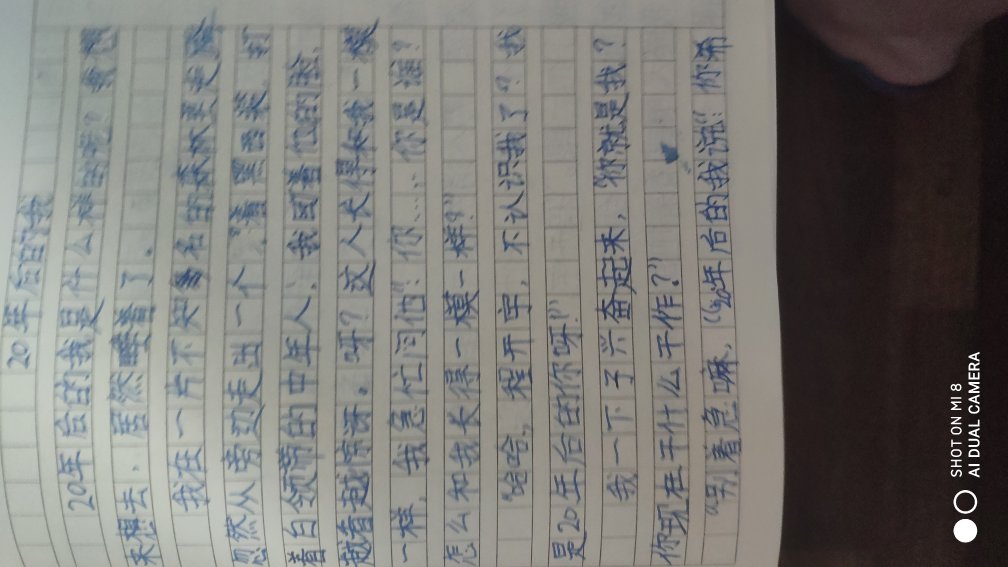 20年后的我
20年后的我是什么样的呢？我想
来想去，居然睡着了。
我在一片不知名的森林里走，
忽然从旁边走出一个 穿着黑西装 打
着白领带的中年人，我看着他的脸，
越看越惊讶。呀？这人长得和我一模
一样，我急忙问他：“你……你是谁？
怎么和我长得一模一样？”
“哈哈，程开宇，不认识我了？我
是20年后的你呀！”
我一下子兴奋起来，“你就是我？
你现在干什么工作？”
“别着急嘛，”20年后的我说：“你希
SHOT ON MI 8
AI DUAL CAMERA